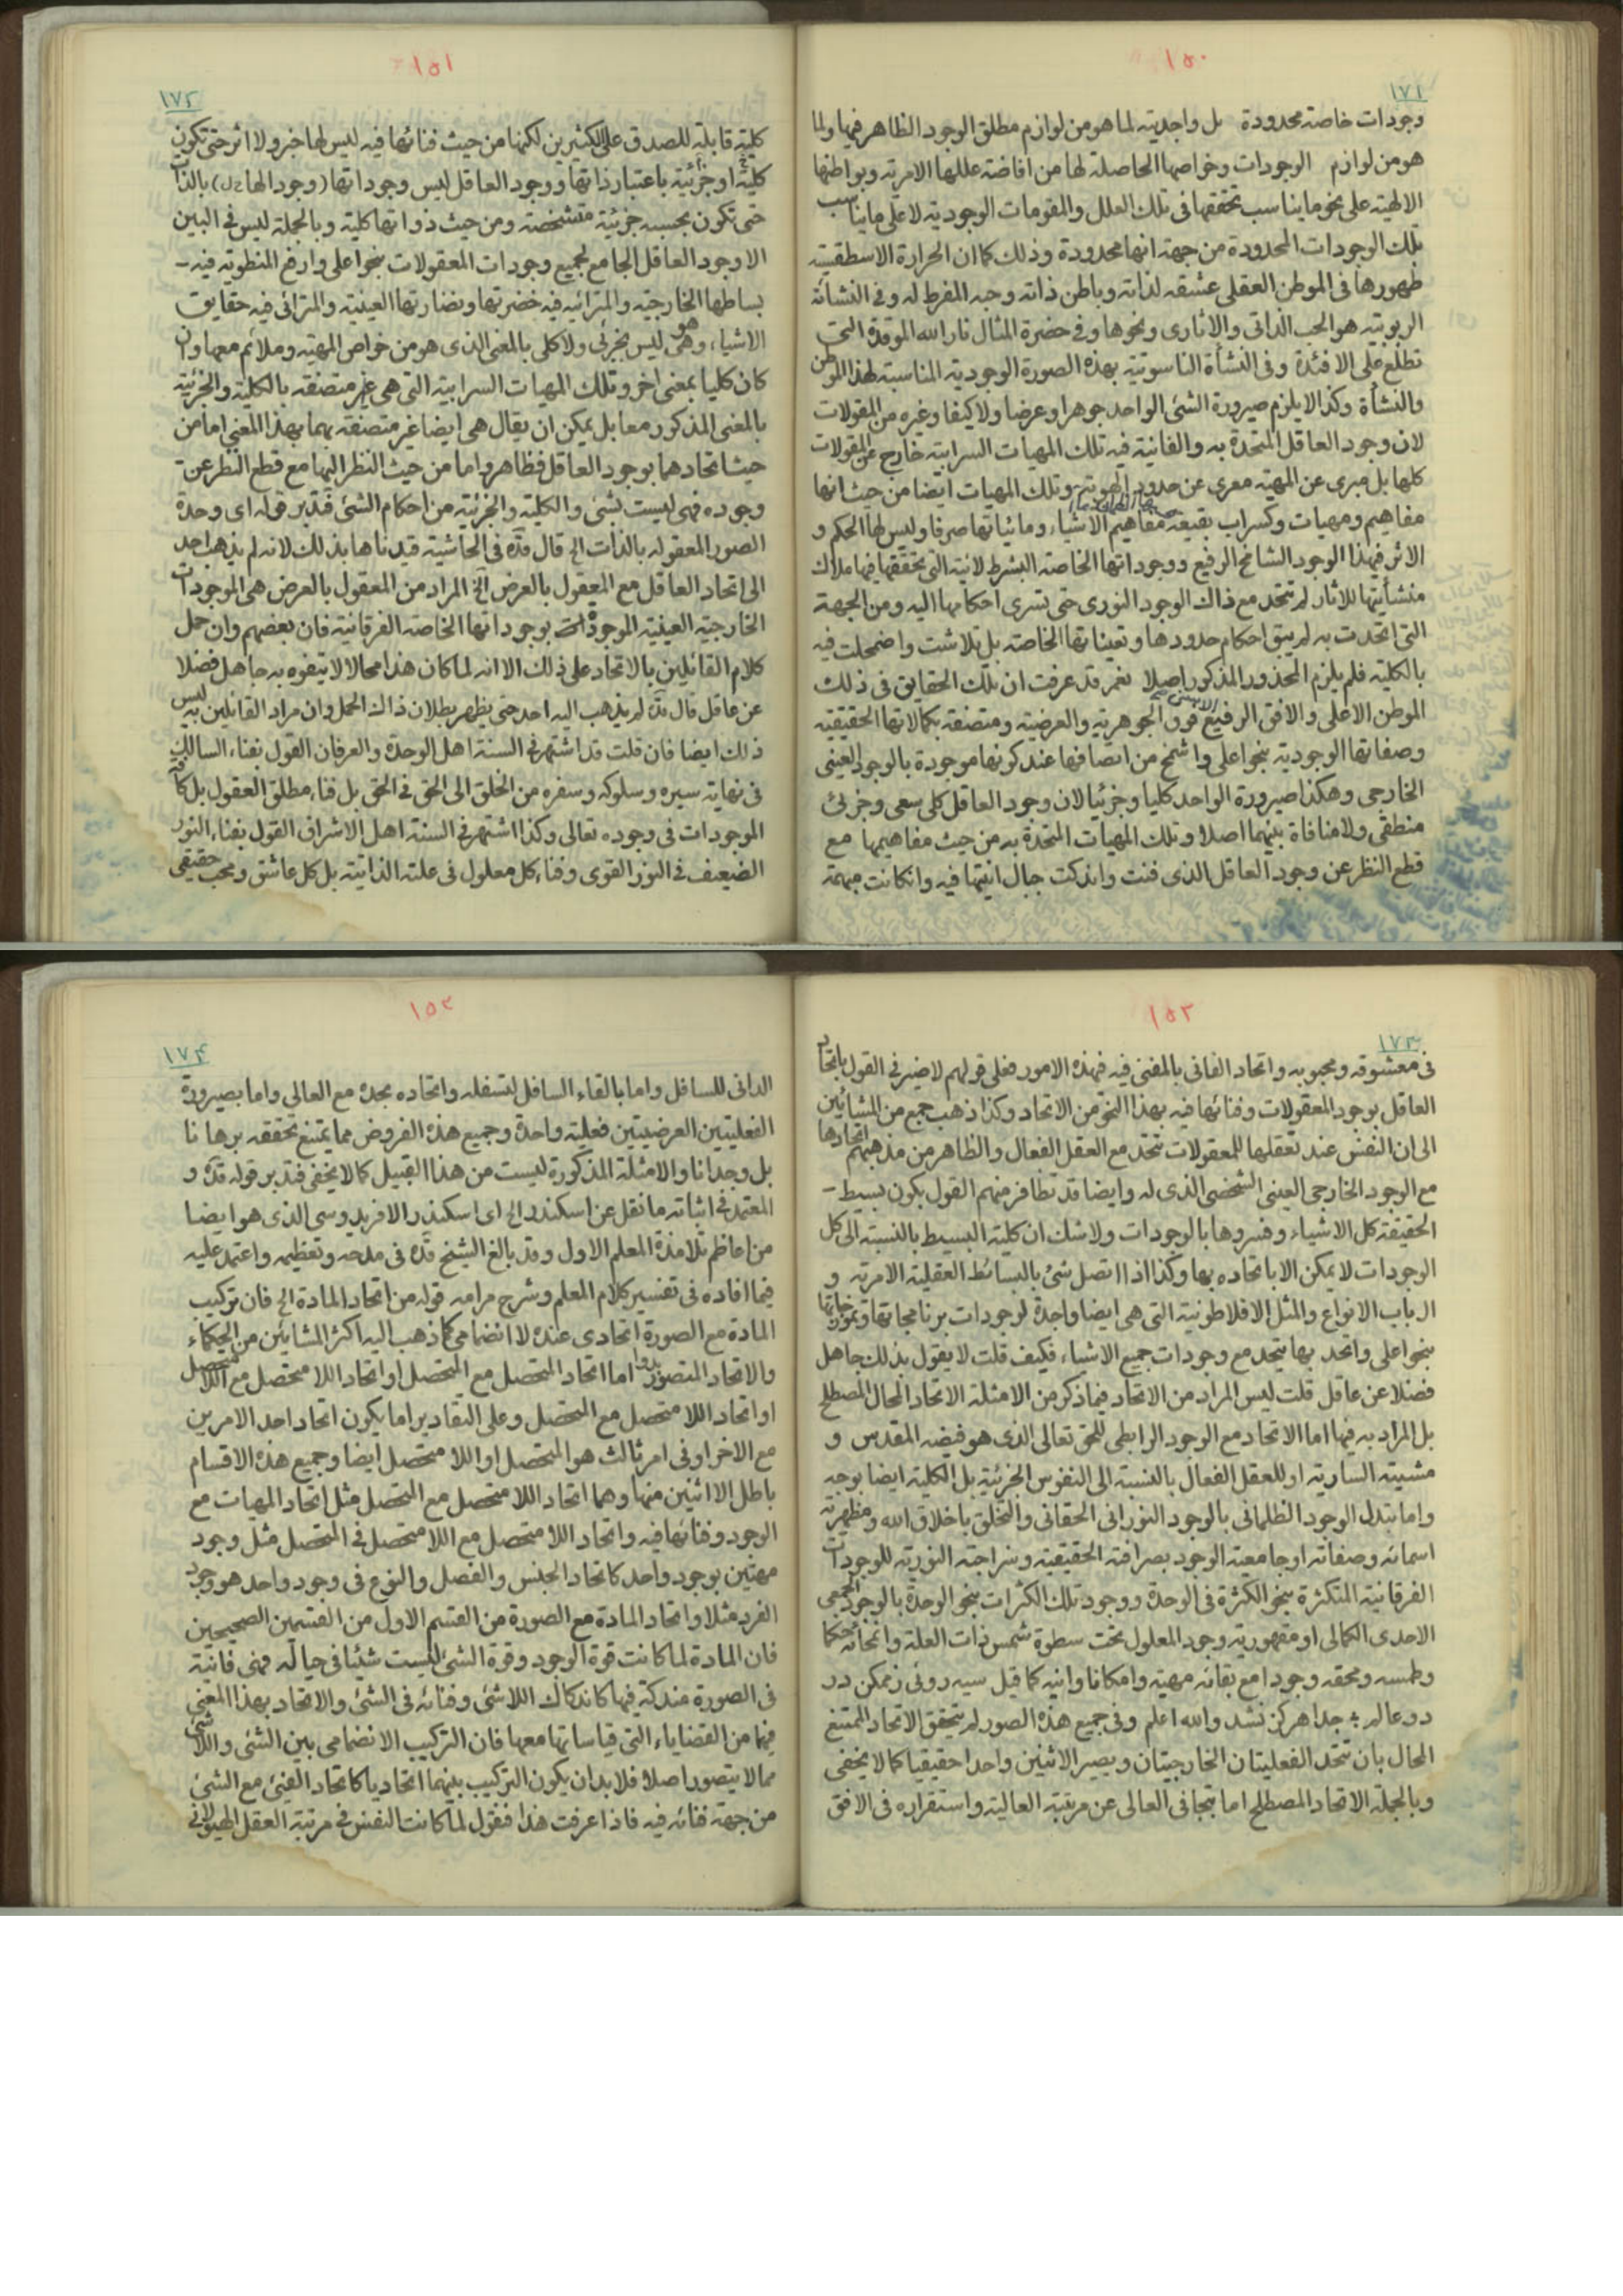 ١٥٠
١٧١
وجودات خاصة محدودة بل واجديته لما هو من لوازم مطلق الوجود الظاهر فيها ولما
هو من لوازم الوجودات وخواصها الحاصلة لها من افاضة عللها الامرية وبواطنها
الالهية على نحو ما يناسب تحققها فى تلك العلل والمقومات الوجودية لا على ما يناسب
تلك الوجودات المحدودة من جهة انها محدودة وذلك كما ان الحرارة الاسطقسية
ظهورها فى الموطن العقلى عشقه لذاته وباطن ذاته وحبه المفرط له وفى النشأة
الربوبية هو الحب الذاتى والاثارى ونحوها وفى حضرة المثال نار الله الموقدة التى
تطلع على الافئدة وفى النشأة الناسوتية بهذه الصورة الوجودية المناسبة لهذا الموطن
والنشأة وكذا لا يلزم صيرورة الشئ الواحد جوهرا وعرضا ولا كيفا وغيره من المقولات
لان وجود العاقل المتحدة به والفانية فيه تلك المهيات السرابية خارج عن المقولات
كلها بل مبرى عن المهية معرى عن حدود وتلك المهيات ايضا من حيث انها
مفاهيم ومهيات وكسراب بقيعة مفاهيم الاشياء وماثياتها صرفا وليس لها الحكم و
الاثر فهذا الوجود الشامخ الرفيع ووجوداتها الخاصة البشرط لائية التى تحققها فيها ملاك
منشأيتها للاثار لم تتحد مع ذاك الوجود النورى حتى تسرى احكامها اليه ومن الجهة
التى اتحدت به لم يبق احكام حدودها وتعيناتها الخاصة بل تلاشت واضمحلت فيه
بالكلية فلم يلزم المحذور المذكور اصلا نعم قد عرفت ان تلك الحقايق فى ذلك
الموطن الاعلى والافق الرفيع فوق الجوهرية والعرضية ومتصفة بكمالاتها الحقيقية
وصفاتها الوجودية بنحو اعلى واشمخ من اتصافها عند كونها موجودة بالوجود العينى
الخارجى وهكذا صيرورة الواحد كليا وجزئيا لان وجود العاقل كلى سعى وجزئى
منطقى ولا منافاة بينهما اصلا وتلك المهيات المتحدة به من حيث مفاهيمها مع
قطع النظر عن وجود العاقل الذى فنت واندكت جبال انيتها فيه وان كانت مبهمة
١٥١
١٧٢
كلية قابلة للصدق على الكثيرين لكنها من حيث فنائها فيه ليس لها خبر ولا اثر حتى تكون
كلية او جزئية باعتبار ذاتها ووجود العاقل ليس وجوداتها (وجودا لها دل) بالذات
حتى تكون بحسبه جزئية متشخصة ومن حيث ذواتها كلية وبالجملة ليس فى البين
الا وجود العاقل الجامع لجميع وجودات المعقولات بنحو اعلى وارفع المنطوية فيه
بساطها الخارجية والمترائية فيه خضرتها ونضارتها العينية والمترائى فيه حقايق
الاشياء وهو ليس بجزئى ولا كلى بالمعنى الذى هو من خواص المهية وملائم معها وان
كان كليا بمعنى اخر وتلك المهيات السرابية التى هى غير متصفة بالكلية والجزئية
بالمعنى المذكور معا بل يمكن ان يقال هى ايضا غير متصفة بهما بهذا المعنى اما من
حيث اتحادهما بوجود العاقل فظاهر واما من حيث النظر اليها مع قطع النظر عن
وجوده فهى ليست بشئ والكلية والجزئية من احكام الشئ فتدبر قوله اى وحدة
الصور المعقولة بالذات الخ قال قده فى الحاشية قيدناها بذلك لانه لم يذهب احد
الى اتحاد العاقل مع المعقول بالعرض الخ المراد من المعقول بالعرض هى الموجودات
الخارجية العينية الموجودة بوجوداتها الخاصة الفرقانية فان بعضهم وان حمل
كلام القائلين بالاتحاد على ذلك الا انه لما كان هذا محالا لا يتفوه به جاهل فضلا
عن عاقل قال قده لم يذهب اليه احد حتى يظهر بطلان ذاك الحمل وان مراد القائلين به ليس
ذلك ايضا فان قلت قد اشتهر فى السنة اهل الوحدة والعرفان القول بفناء السالك
فى نهاية سيره وسلوكه وسفره من الخلق الى الحق فى الحق بل فناء مطلق العقول بل كافة
الموجودات فى وجوده تعالى وكذا اشتهر فى السنة اهل الاشراق القول بفناء النور
الضعيف فى النور القوى وفناء كل معلول فى علته الذاتية بل كل عاشق ومحب حقيقى
١٥٢
١٧٣
فى معشوقه ومحبوبه واتحاد الفانى بالمفنى فيه فهذه الامور فعلى قولهم لا ضير فى القول باتحاد
العاقل بوجود المعقولات وفنائها فيه بهذا النحو من الاتحاد وكذا ذهب جمع من المشائين
الى ان النفس عند تعقلها للمعقولات تتحد مع العقل الفعال والظاهر من مذهبهم اتحادها
مع الوجود الخارجى العينى الشخصى الذى له وايضا قد تظافر منهم القول بكون بسيط
الحقيقة كل الاشياء وفسروها بالوجودات ولا شك ان كلية البسيط بالنسبة الى كل
الوجودات لا يمكن الا باتحاده بها وكذا اذا اتصل شئ بالبسائط العقلية الامرية و
ارباب الانواع والمثل الافلاطونية التى هى ايضا واجدة لوجودات برنامجاتها
بنحو اعلى واتحد بها يتحد مع وجودات جميع الاشياء فكيف قلت لا يقول بذلك جاهل
فضلا عن عاقل قلت ليس المراد من الاتحاد فيما ذكر من الامثلة الاتحاد المحال المصطلح
بل المراد به فيها اما الاتحاد مع الوجود الرابطى للحق تعالى الذى هو فيضه المقدس و
مشيته السارية او للعقل الفعال بالنسبة الى النفوس الجزئية بل الكلية ايضا بوجه
واما بتدل الوجود الظلمانى بالوجود النورانى الحقانى والتخلق باخلاق الله ومظهرية
اسمائه وصفاته او جامعية الوجود بصرافته الحقيقية وسراجته النورية للوجودات
الفرقانية المتكثرة بنحو الكثرة فى الوحدة ووجود تلك الكثرات بنحو الوحدة بالوجود الجمعى
الاحدى الكمالى او مقهورية وجود المعلول تحت سطوة شمس ذات العلة وانمحائه حكما
وطمسه ومحقه وجودا مع بقائه مهية وامكانا وانية كما قيل سيه روئى ز ممكن در
دو عالم ؛ جدا هركز نشد والله اعلم وفى جميع هذه الصور لم يتحقق الاتحاد الممتنع
المحال بان تتحد الفعليتان الخارجيتان ويصير الاثنين واحدا حقيقيا كما لا يخفى
وبالجملة الاتحاد المصطلح اما بتجافى العالى عن مرتبته العالية واستقراره فى الافق
١٥٣
١٧٤
الدانى للسافل واما بالقاء السافل لتسفله واتحاده بحده مع العالى واما بصيرورة
الفعليتين العرضيتين فعلية واحدة وجميع هذه الفروض مما يمتنع تحققه برهانا
بل وجدانا والامثلة المذكورة ليست من هذا القبيل كما لا يخفى فتدبر قوله قده و
المعتمد فى اثباته ما نقل عن اسكندر الخ اى اسكندر الافريدوسى الذى هو ايضا
من اعاظم تلامذة المعلم الاول وقد بالغ الشيخ قده فى مدحه وتعظيمه واعتمد عليه
فيما افاده فى تفسير كلام المعلم وشرح مرامه قوله من اتحاد المادة الخ فان تركيب
المادة مع الصورة اتحادى عنده لا انضمامى كما ذهب اليه اكثر المشائين من الحكماء
والاتحاد المتصور اما اتحاد المتحصل مع المتحصل او اتحاد اللا متحصل مع اللا متحصل
او اتحاد اللا متحصل مع المتحصل وعلى التقادير اما يكون اتحاد احد الامرين
مع الاخر او فى امر ثالث هو المتحصل او اللا متحصل ايضا وجميع هذه الاقسام
باطل الا اثنين منها وهما اتحاد اللا متحصل مع المتحصل مثل اتحاد المهيات مع
الوجود وفنائها فيه واتحاد اللا متحصل مع اللا متحصل فى المتحصل مثل وجود
مهيتين بوجود واحد كاتحاد الجنس والفصل والنوع فى وجود واحد هو وجود
الفرد مثلا واتحاد المادة مع الصورة من القسم الاول من القسمين الصحيحين
فان المادة لما كانت قوة الوجود وقوة الشئ ليست شيئا فى حياله فهى فانية
فى الصورة مندكة فيها كاندكاك اللاشئ وفنائه فى الشئ والاتحاد بهذا المعنى
فيها من القضاياء التى قياساتها معها فان التركيب الانضمامى بين الشئ واللاشئ
مما لا يتصور اصلا فلا بد ان يكون التركيب بينهما اتحاديا كاتحاد الفيئ مع الشئ
من جهة فنائه فيه فاذا عرفت هذا فنقول لما كانت النفس فى مرتبة العقل الهيولانى